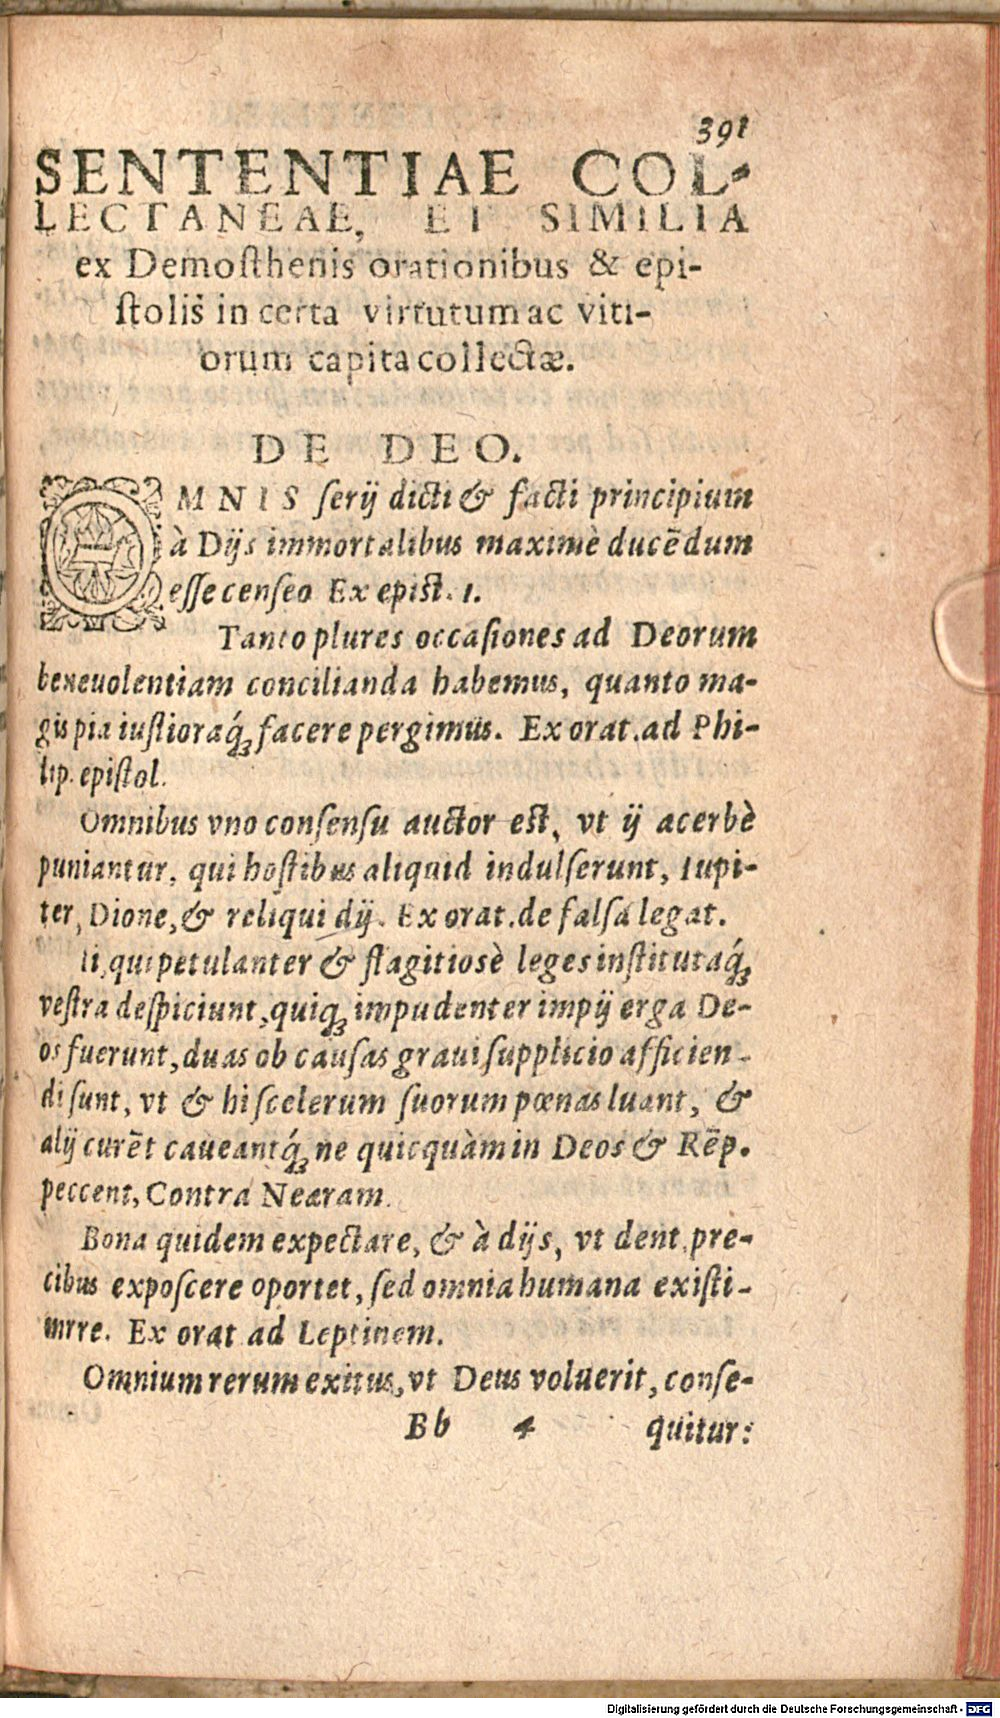 391
SENTENTIAE COL-
LECTANEAE, ET SIMILIA
ex Demosthenis orationibus & epi-
stolis in certa virtutum ac viti-
orum capita collectæ.
DE DEO.
OMNIS serij dicti & facti principium
à Dijs immortalibus maximè ducēdum
esse censeo Ex epist. 1.
Tanto plures occasiones ad Deorum
beneuolentiam concilianda habemus, quanto ma-
gis pia iustioraq́ꝫ facere pergimus. Ex orat. ad Phi-
lip. epistol.
Omnibus vno consensu auctor est, vt ij acerbè
puniantur, qui hostibus aliquid indulserunt, Iupi-
ter, Dione, & reliqui dij. Ex orat. de falsa legat.
Ii, qui petulanter & flagitiosè leges institutaq́ꝫ
vestra despiciunt, quiqꝫ impudenter impij erga De-
os fuerunt, duas ob causas graui supplicio afficien-
di sunt, vt & hi scelerum suorum pœnas luant, &
alij curēt caueantq́ꝫ ne quicquàm in Deos & Rēp.
peccent, Contra Nearam.
Bona quidem expectare, & à dijs, vt dent, pre-
cibus exposcere oportet, sed omnia humana existi-
mrre. Ex orat ad Leptinem.
Omnium rerum exitus, vt Deus voluerit, conse-
Bb 4 quitur:
Digitalisierung gefördert durch die Deutsche Forschungsgemeinschaft - DFG